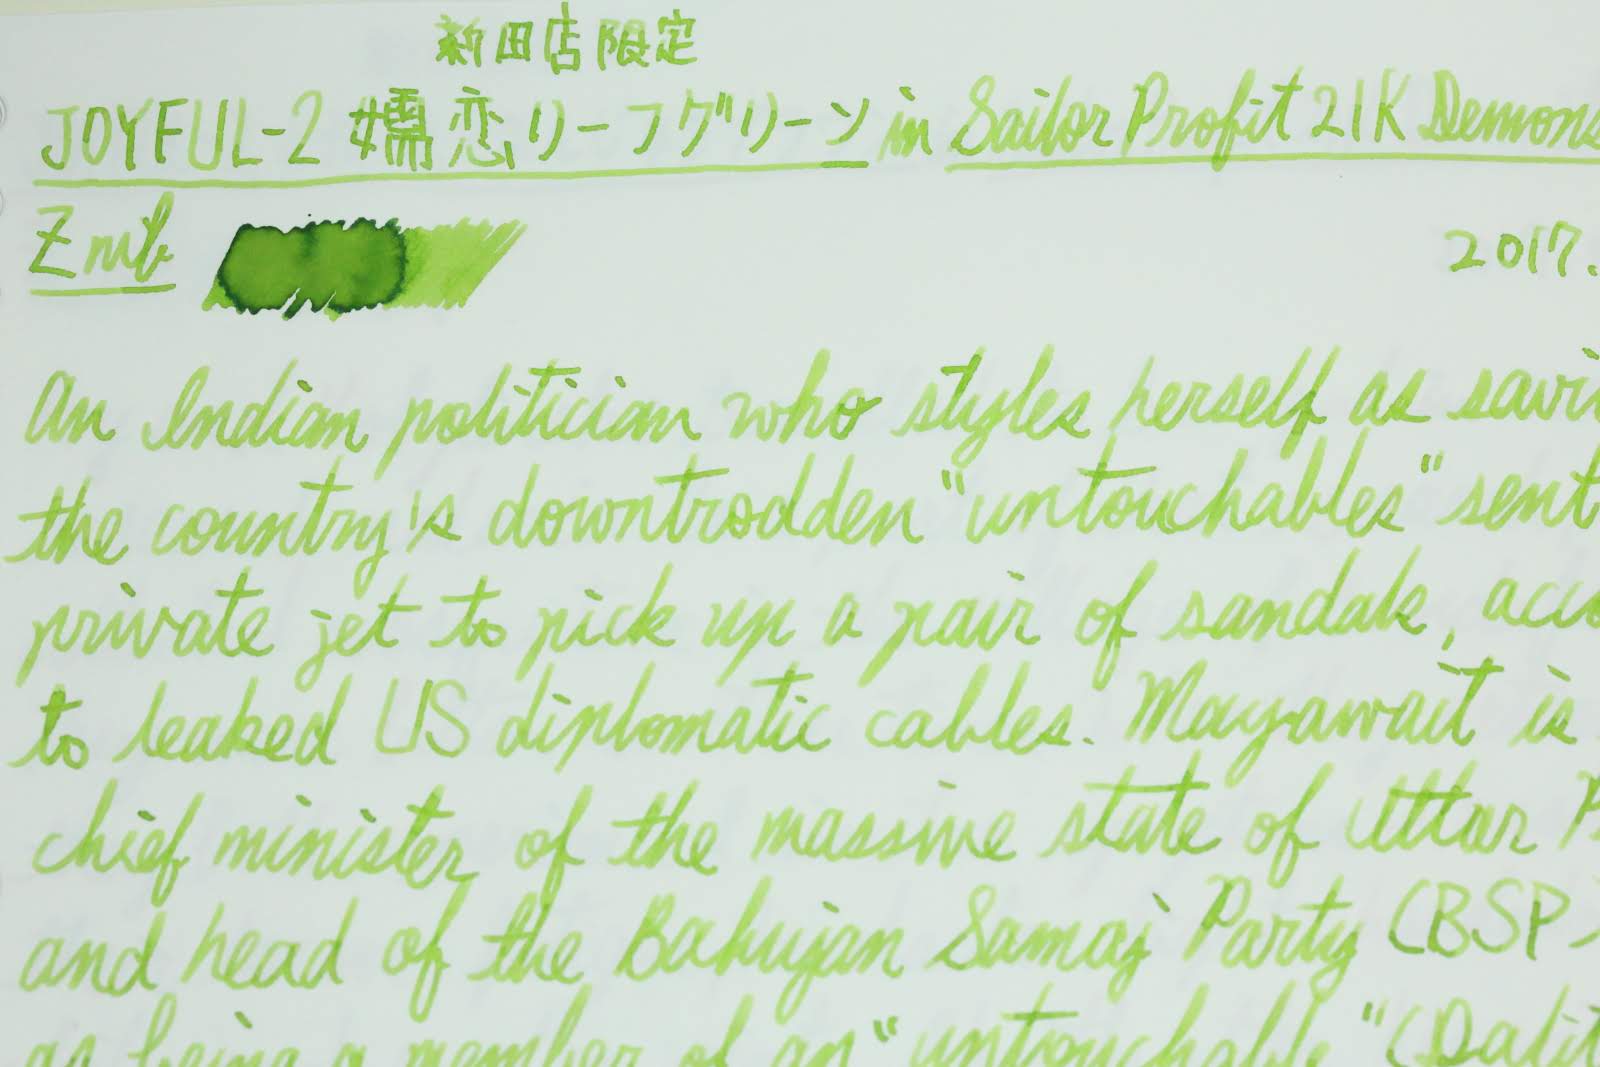 新田店限定
JOYFUL-2 嬬恋リーフグリーン in Sailor Profit 21K Demons
Z nib 2017.
An Indian politician who styles herself as savi
the country's downtrodden "untouchables" sent
private jet to pick up a pair of sandals, acco
to leaked US diplomatic cables. Mayawati is
chief minister of the massive state of Uttar P
and head of the Bahujan Samaj Party (BSP)
as being a member of an "untouchable "(Dalit